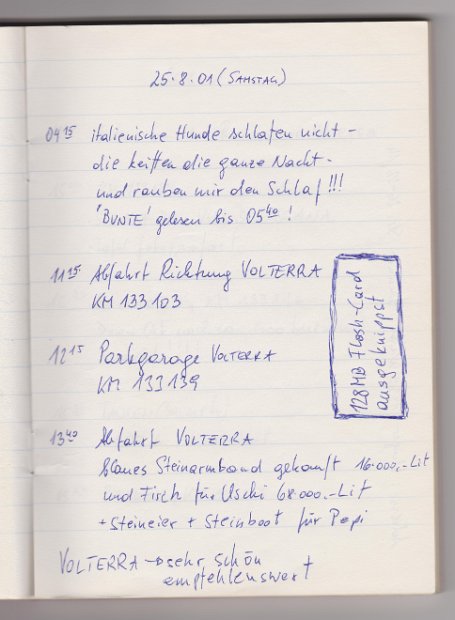 25.8.01 (SAMSTAG)
04 15 italienische Hunde schlafen nicht -
die keiften die ganze Nacht -
und rauben mir den Schlaf !!!
'BUNTE' gelesen bis 05 40 !
11 15 Abfahrt Richtung VOLTERRA
KM 133 103
12 15 Parkgarage VOLTERRA
KM 133 139
128 MB Flash-Card
ausgeknippst
13 40 Abfahrt VOLTERRA
blaues Steinarmband gekauft 16.000,-Lit
und Fisch für Uschi 68.000,-Lit
+ Steineier + Steinboot für Papi
VOLTERRA → sehr schön
empfehlenswert